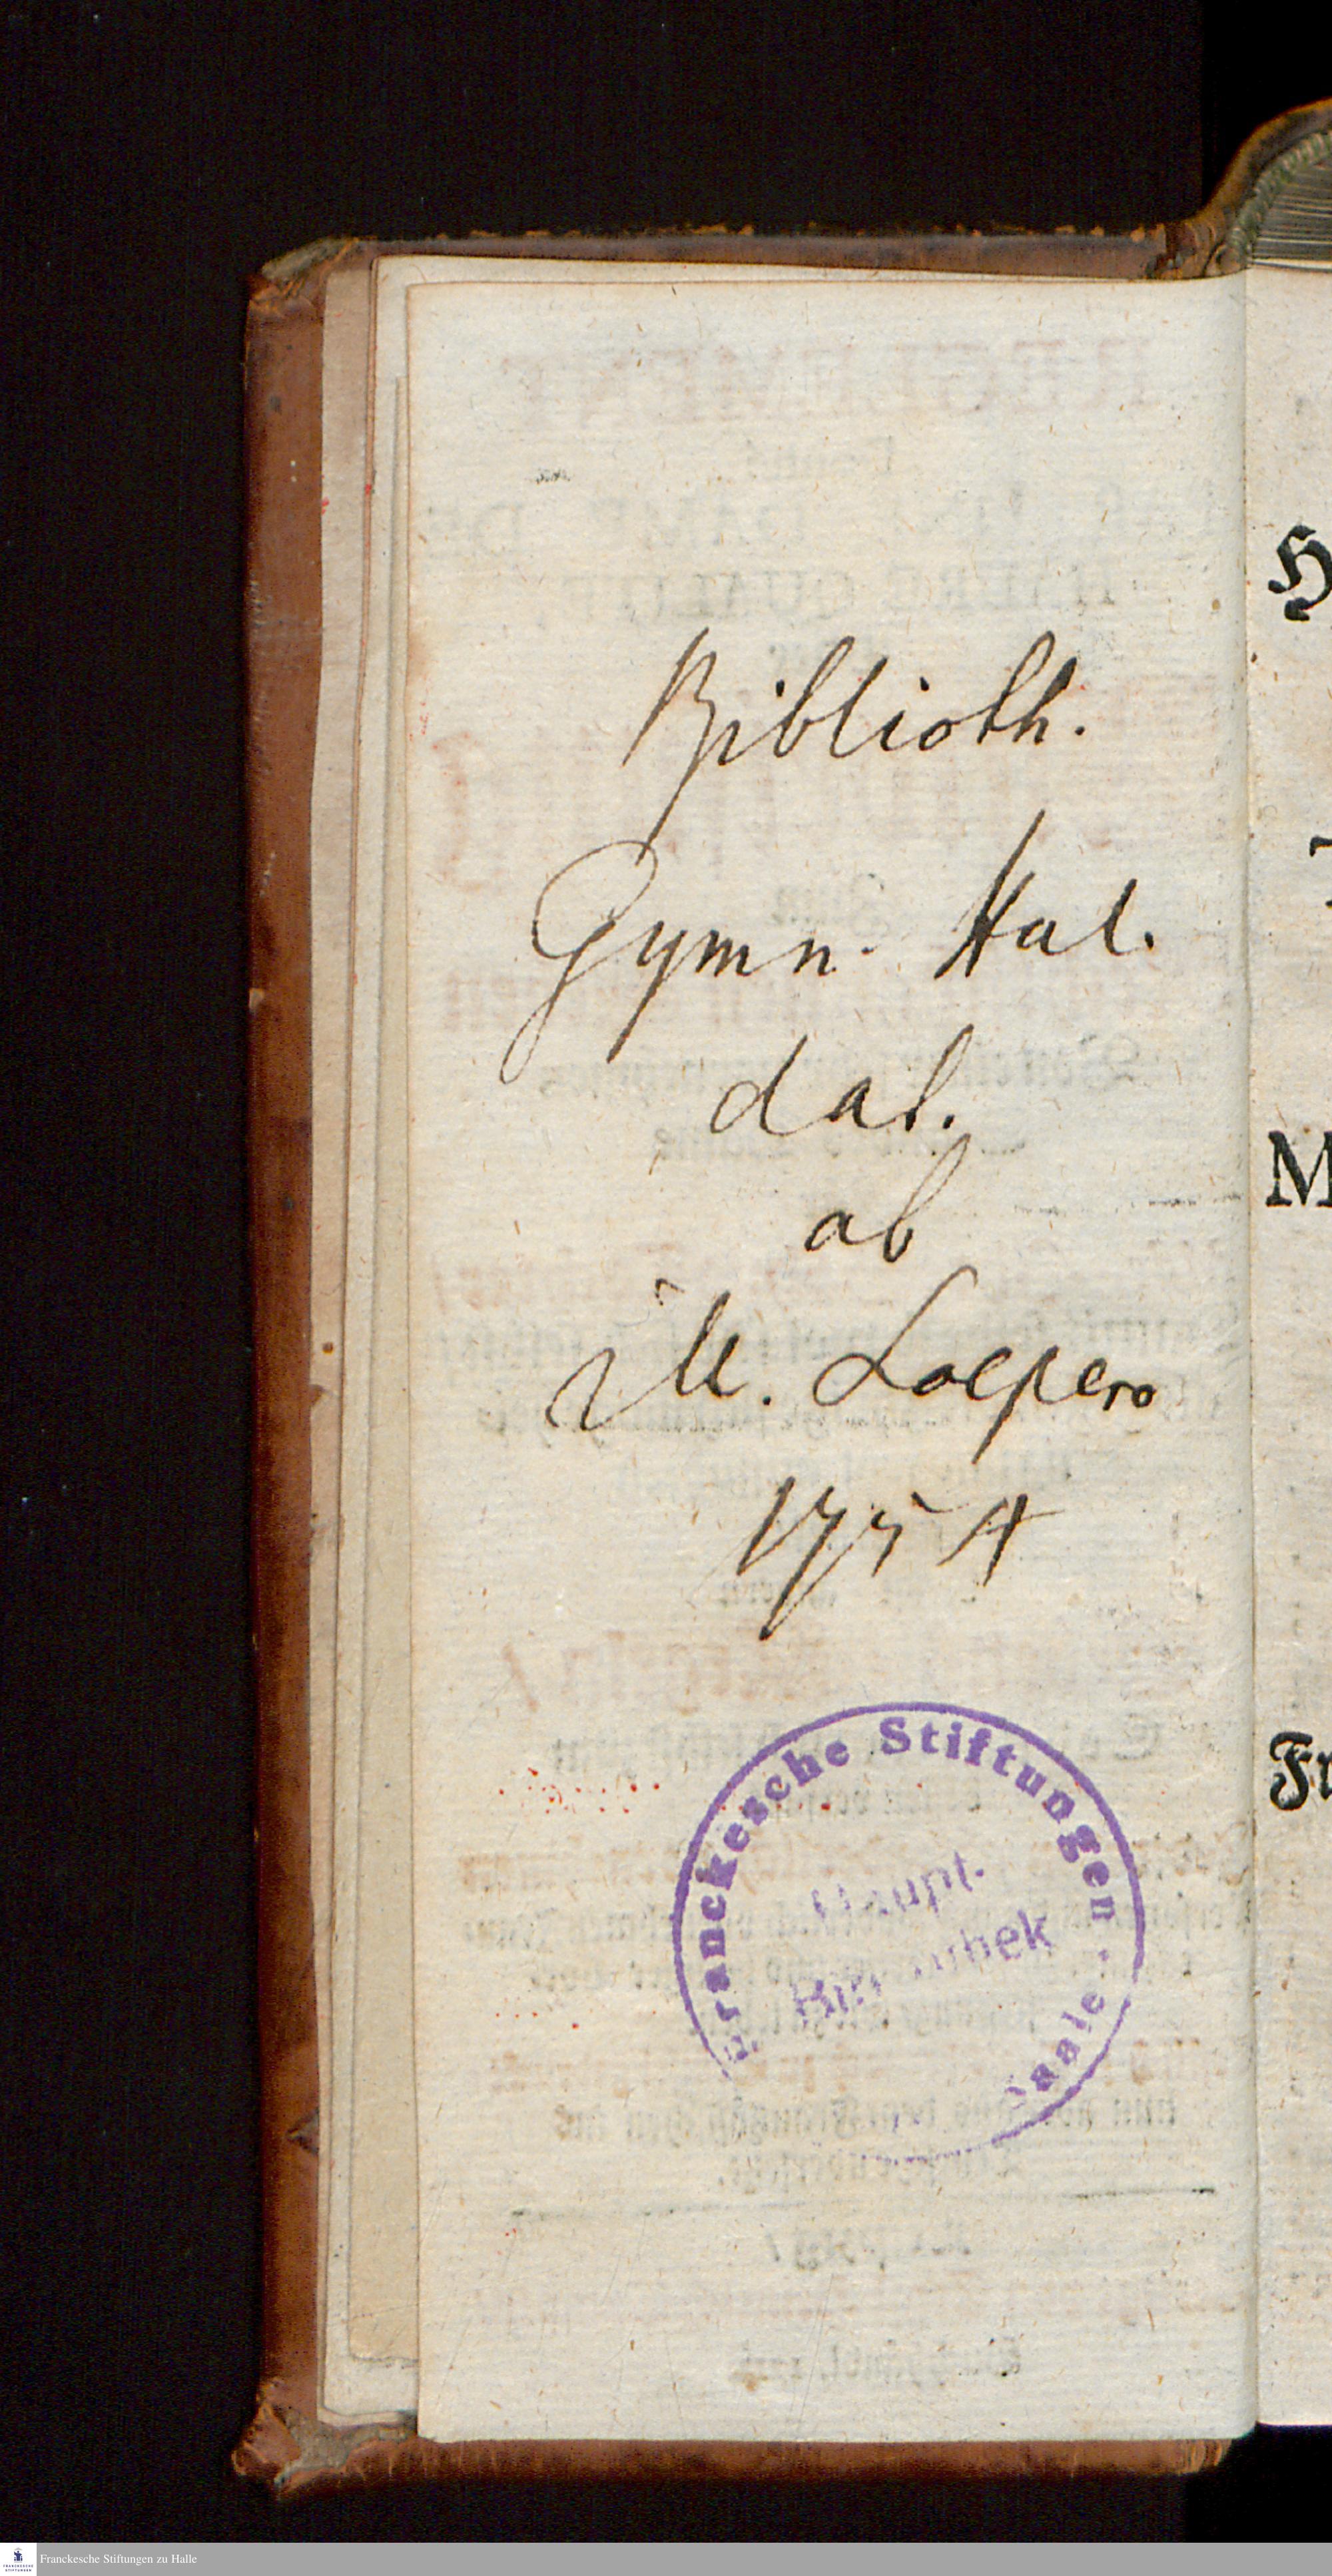 Biblioth.
Gymn. Hal.
dat.
ab
M. Loepero
1754
Franckesche Stiftungen
Haupt-
Bibliothek
Saale
H
M
Fr
FRANCKESCHE
STIFTUNGEN
Franckesche Stiftungen zu Halle